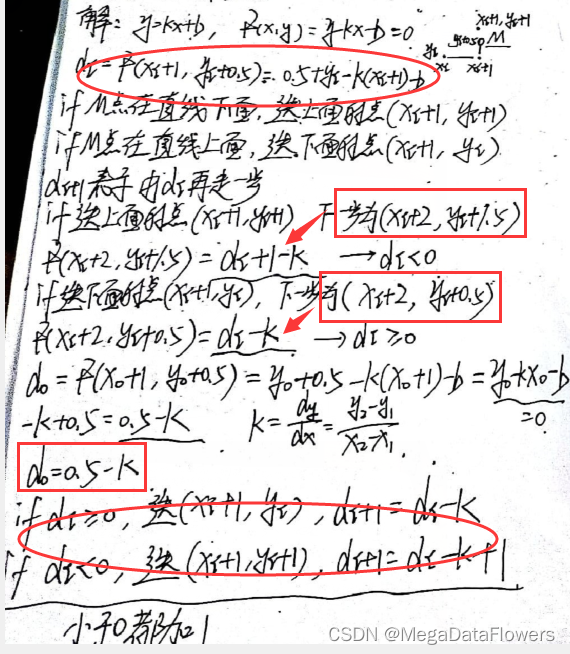 解: y=kx+b, F(x,y)=y-kx-b=0
xi+1, yi+1
yi yi+0.5 M
xi xi+1
di=F(xi+1, yi+0.5)=0.5+yi-k(xi+1)-b
if M点在直线下面,选上面的点(xi+1, yi+1)
if M点在直线上面,选下面的点(xi+1, yi)
di+1表示由di再走一步
if选上面的点(xi+1, yi+1) 下一步为(xi+2, yi+1.5)
F(xi+2, yi+1.5)=di+1-k →di<0
if选下面的点(xi+1, yi), 下一步为(xi+2, yi+0.5)
F(xi+2, yi+0.5)=di-k →di≥0
d0=F(x0+1, y0+0.5)=y0+0.5-k(x0+1)-b=y0-kx0-b
=0
-k+0.5=0.5-k k=dy/dx=y2-y1/x2-x1.
d0=0.5-k
if di≥0, 选(xi+1, yi), di+1=di-k
if di<0, 选(xi+1, yi+1), di+1=di-k+1
小于0都加1
CSDN @MegaDataFlowers